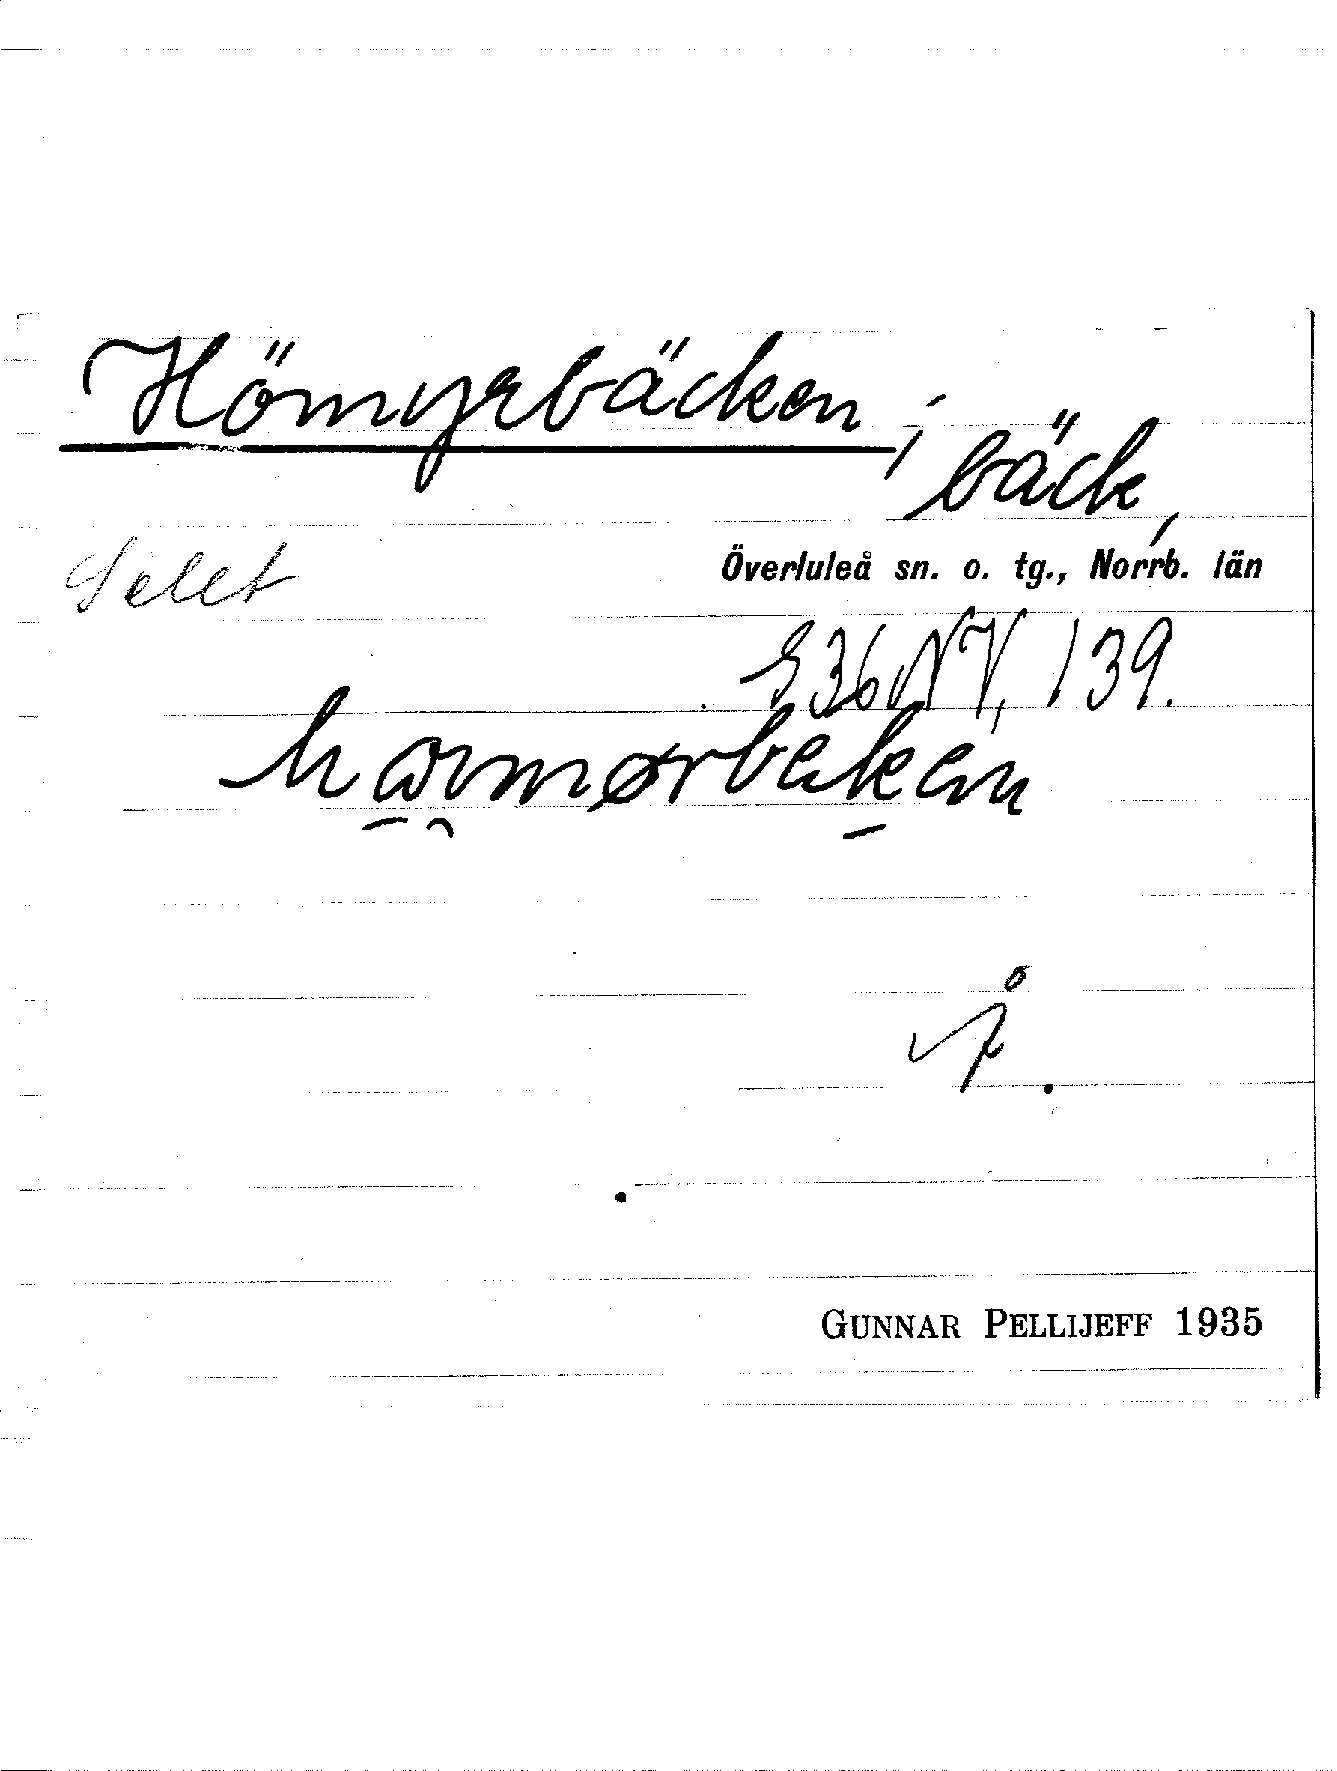 Hömyrbäcken;
bäck,
Selet
Överluleå sn. o. tg., Norrb. län
S 36 NV, 139.
GUNNAR PELLIJEFF 1935